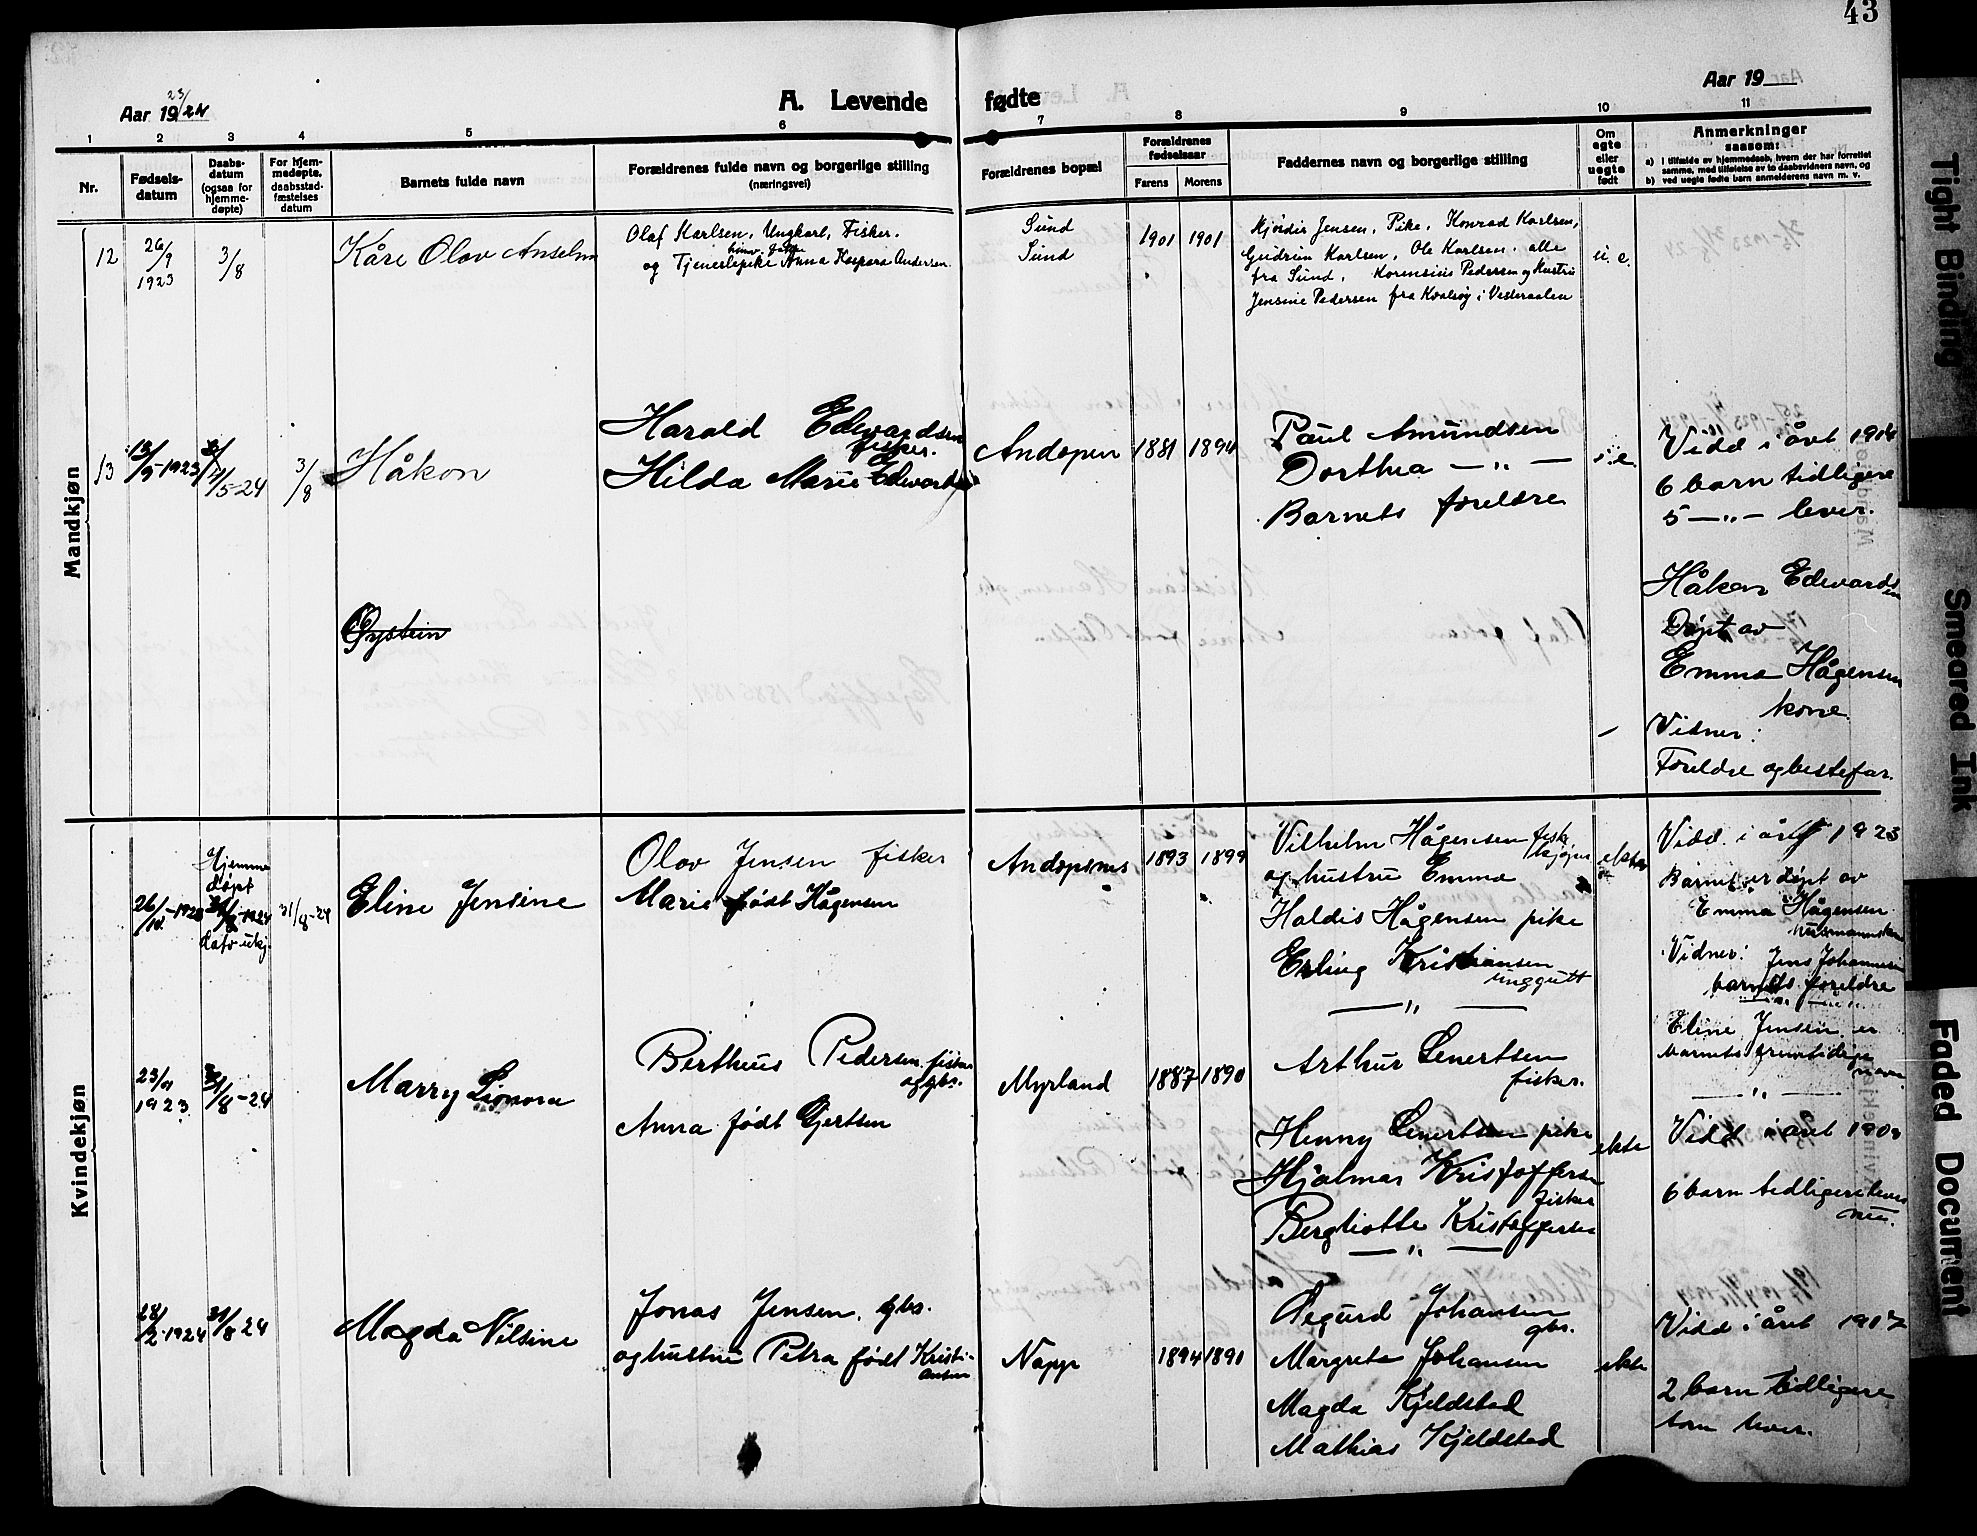 43
Aar 19 23/24
A. Levende fødte
Aar 19
1 2 3 4 5 6 7 8 9 10 11
Nr.
Fødsels-
datum
Daabs-
datum
(ogsaa for
hjemme-
døpte)
For hjem-
medøpte.
daabsstad-
fæstelses
datum
Barnets fulde navn
Forældrenes fulde navn og borgerlige stilling
(næringsvei)
Forældrenes bopæl
Forældrenes
fødselsaar
Farens Morens
Faddernes navn og borgerlige stilling
Om
egte
eller
uegte
født
Anmerkninger
saasom:
a) i tilfælde av hjemmedaab, hvem der har forrettet
samme, med tilføielse av to daabsvidners navn, og
b) ved uegte fødte barn anmelderens navn m. v.
Mandkjøn
12
26/9
1923
3/8
Kåre Olav Anselm
Olaf Karlsen, Ungkarl, Fisker.
og Tjenestepike Anna Kaspara Andersen
Sund
Sund
1901 1901
Hjördis Jensen, Pike, Konrad Karlsen,
Gudrun Karlsen, Ole Karlsen. alle
fra Sund. Korensius Pedersen og Hustru
Jensine Pedersen fra Kvalsøy i Vesteraalen
u. e.
13
13/9-1923
4/5-24
3/8
Håkon
Harald Edvardsen
fisker.
Hilda Marie Edvardsen
Andopen
1881 1894
Paul Amundsen
Dorthea — „ —
Barnets foreldre
Vidd i året 1914
6 barn tidligere
5 — „ — lever.
Øystein
Håkon Edvardsen
Døpt av
Emma Hågensen
kone.
Vidner:
Foreldre og bestefar.
Kvindekjøn
26/10-1923
Hjemme
døpt
31/8-24
Eline Jensine
Olav Jensen fisker
Marie født Hågensen
Andopsnes
1893 1899
Vilhelm Hågensen fisk
kjøper
og hustru Emma
Haldis Hågensen pike
Erling Kristiansen
unggutt
— „ —
Vidd. i året 1923
Barnet er døpt av
Emma Hågensen
Vidner: Jens Johannesen
barnets foreldre
Eline Jensen er
barnets fremtidige
navn.
— „ —
23/11
1923
31/8-24
Marry Lionora
Berthus Pedersen fisker
og gbr.
Anna født Gjertsen
Myrland
1887 1890
Arthur Lenertsen
fisker.
Henny Lenertsen pike
Hjalmar Kristoffersen
fisker
Bergliotte Kristoffersen
— „ —
ekte
Vidd i året 1909
6 barn tidligere lever
nu.
28/2-1924
31/8-24
Magda Nilsine
Jonas Jensen, gbr.
og hustru Petra født Kristi-
ansen
Napp
1894 1891
Sigurd Johansen
gbr.
Margrete Johansen
Magda Kjeldstad
Mathias Kjeldstad
ekte
Vidd i året 1917
2 barn tidligere
som lever.
Tight Binding
Smeared Ink
Faded Document